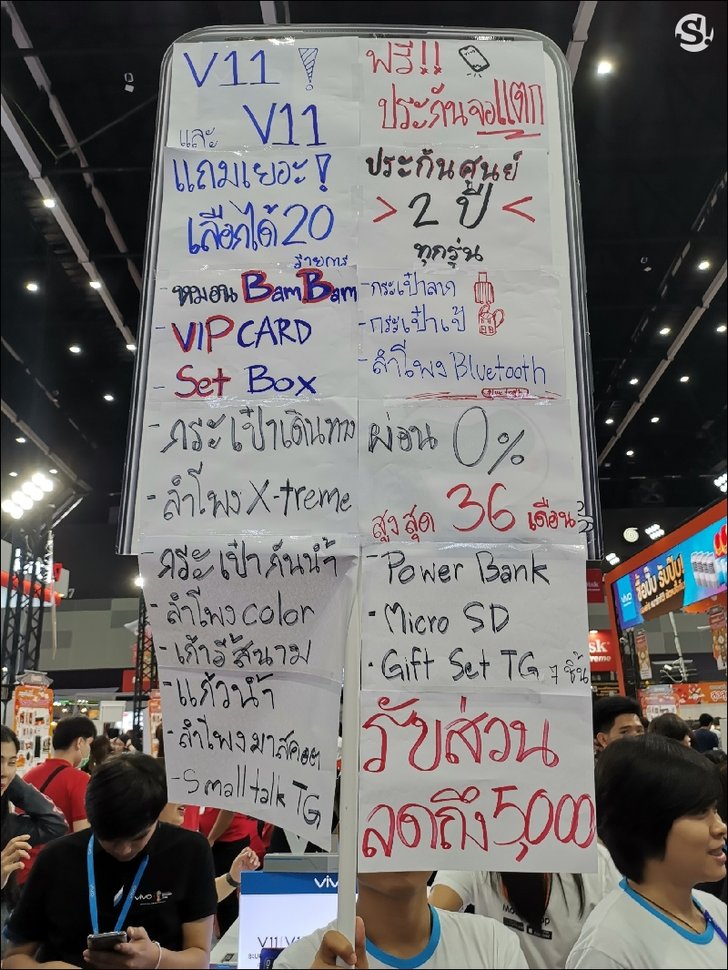 V11 !
และ V11
แถมเยอะ!
เลือกได้ 20
รายการ
- หมอน BamBam
- VIP CARD
- Set Box
- กระเป๋าเดินทาง
- ลำโพง X-treme
- กระเป๋ากันน้ำ
- ลำโพง color
- เก้าอี้สนาม
- แก้วน้ำ
- ลำโพงมาสคอต
- Smalltalk TG
ฟรี!!
ประกันจอแตก
ประกันศูนย์
> 2 ปี <
ทุกรุ่น
- กระเป๋าลาก
- กระเป๋าเป้
- ลำโพง Bluetooth
Bluetooth
ผ่อน 0%
สูงสุด 36 เดือน
- Power Bank
- Micro SD
- Gift Set TG 7 ชิ้น
รับส่วน
ลดถึง 5,000
S!
vivo
ซื้อปุ๊บ รับปุ๊บ!
vivo
vivo
V11 | V11